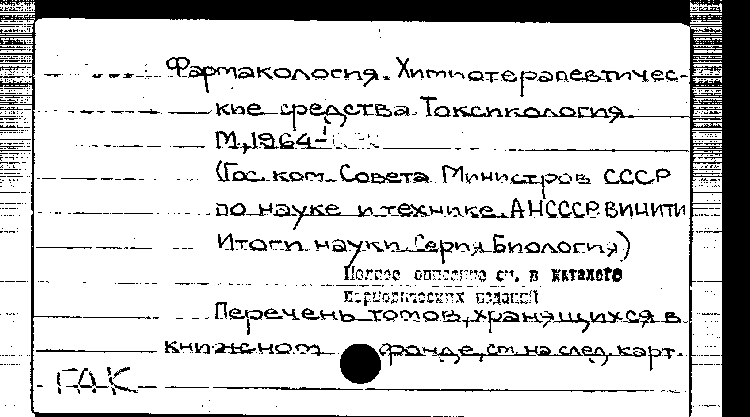 Фармакология. Химиотерапевтичес-
кие средства. Токсикология.
М, 1964-
(Гос. ком. Совета Министров СССР
по науке и технике. АН СССР. ВИНИТИ
Итоги науки. Серия Биология)
Полное описание см. в каталоге
периодических изданий
Перечень томов, хранящихся в
книжном фонде, см. на след. карт.
ГАК